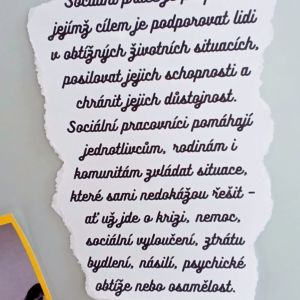 Sociální
jejímž cílem je podporovat lidi
v obtížných životních situacích,
posilovat jejich schopnosti a
chránit jejich důstojnost.
Sociální pracovníci pomáhají
jednotlivcům, rodinám i
komunitám zvládat situace,
které sami nedokážou řešit –
ať už jde o krizi, nemoc,
sociální vyloučení, ztrátu
bydlení, násilí, psychické
obtíže nebo osamělost.